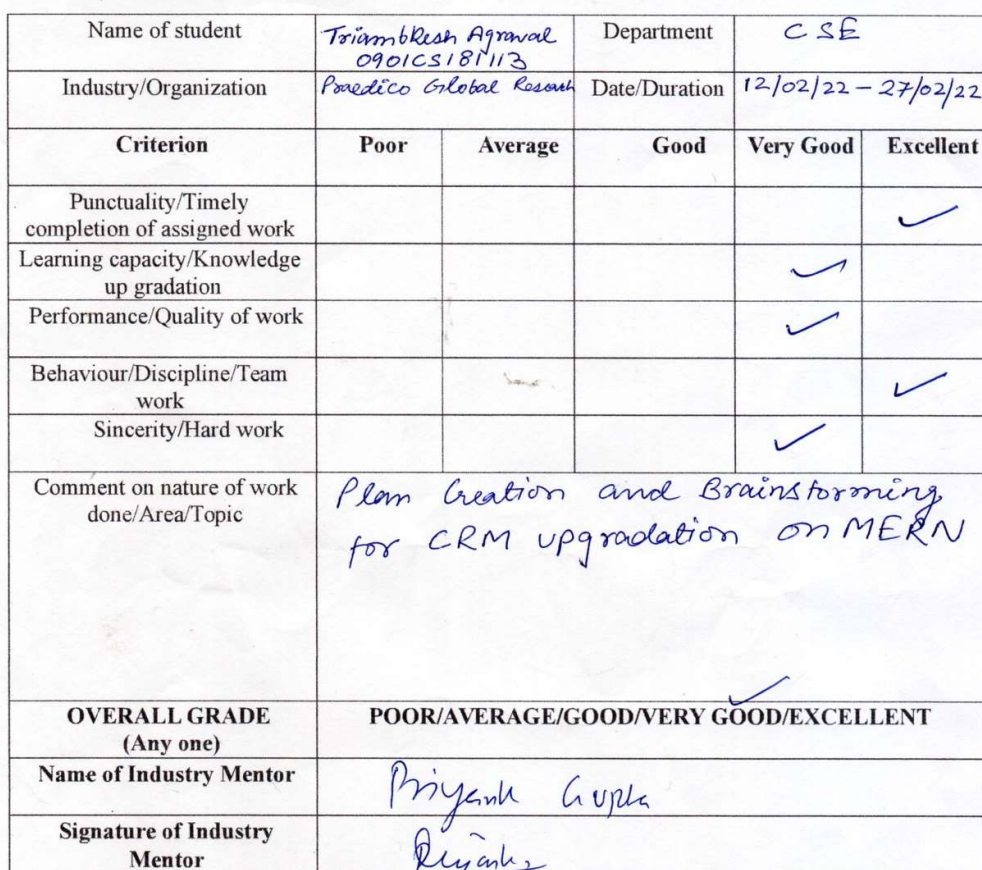 Name of student
Triambkesh Agrawal
0901CS181113
Department
CSE
Industry/Organization
Praedico Global Research
Date/Duration
12/02/22 – 27/02/22
Criterion
Poor
Average
Good
Very Good
Excellent
Punctuality/Timely
completion of assigned work
Learning capacity/Knowledge
up gradation
Performance/Quality of work
Behaviour/Discipline/Team
work
Sincerity/Hard work
Comment on nature of work
done/Area/Topic
Plan Creation and Brainstorming
for CRM upgradation on MERN
OVERALL GRADE
(Any one)
POOR/AVERAGE/GOOD/VERY GOOD/EXCELLENT
Name of Industry Mentor
Priyank Gupta
Signature of Industry
Mentor